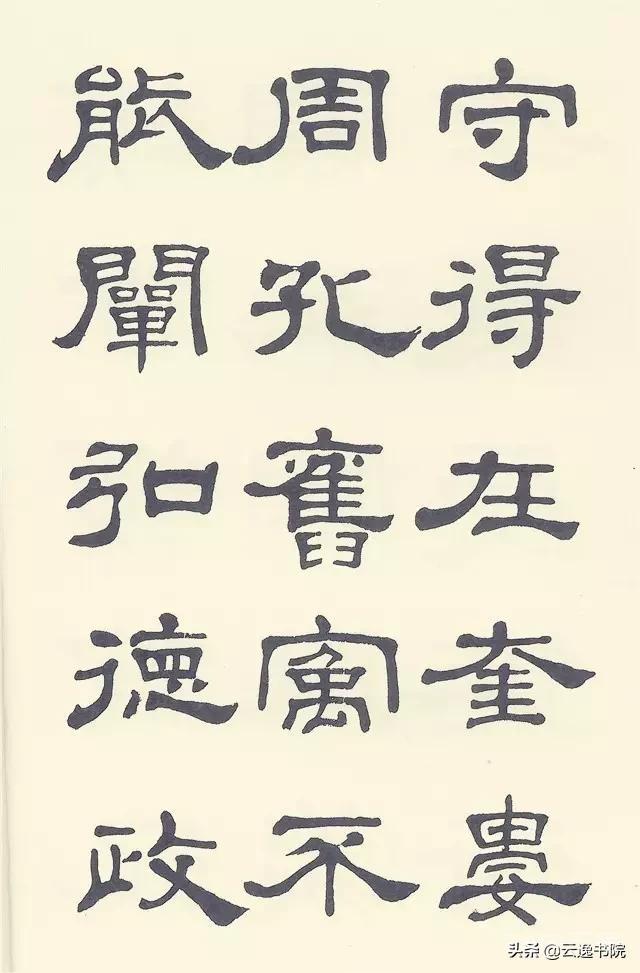 守得在奎婁
周孔舊寓不
能闡弘德政
头条 @云逸书院